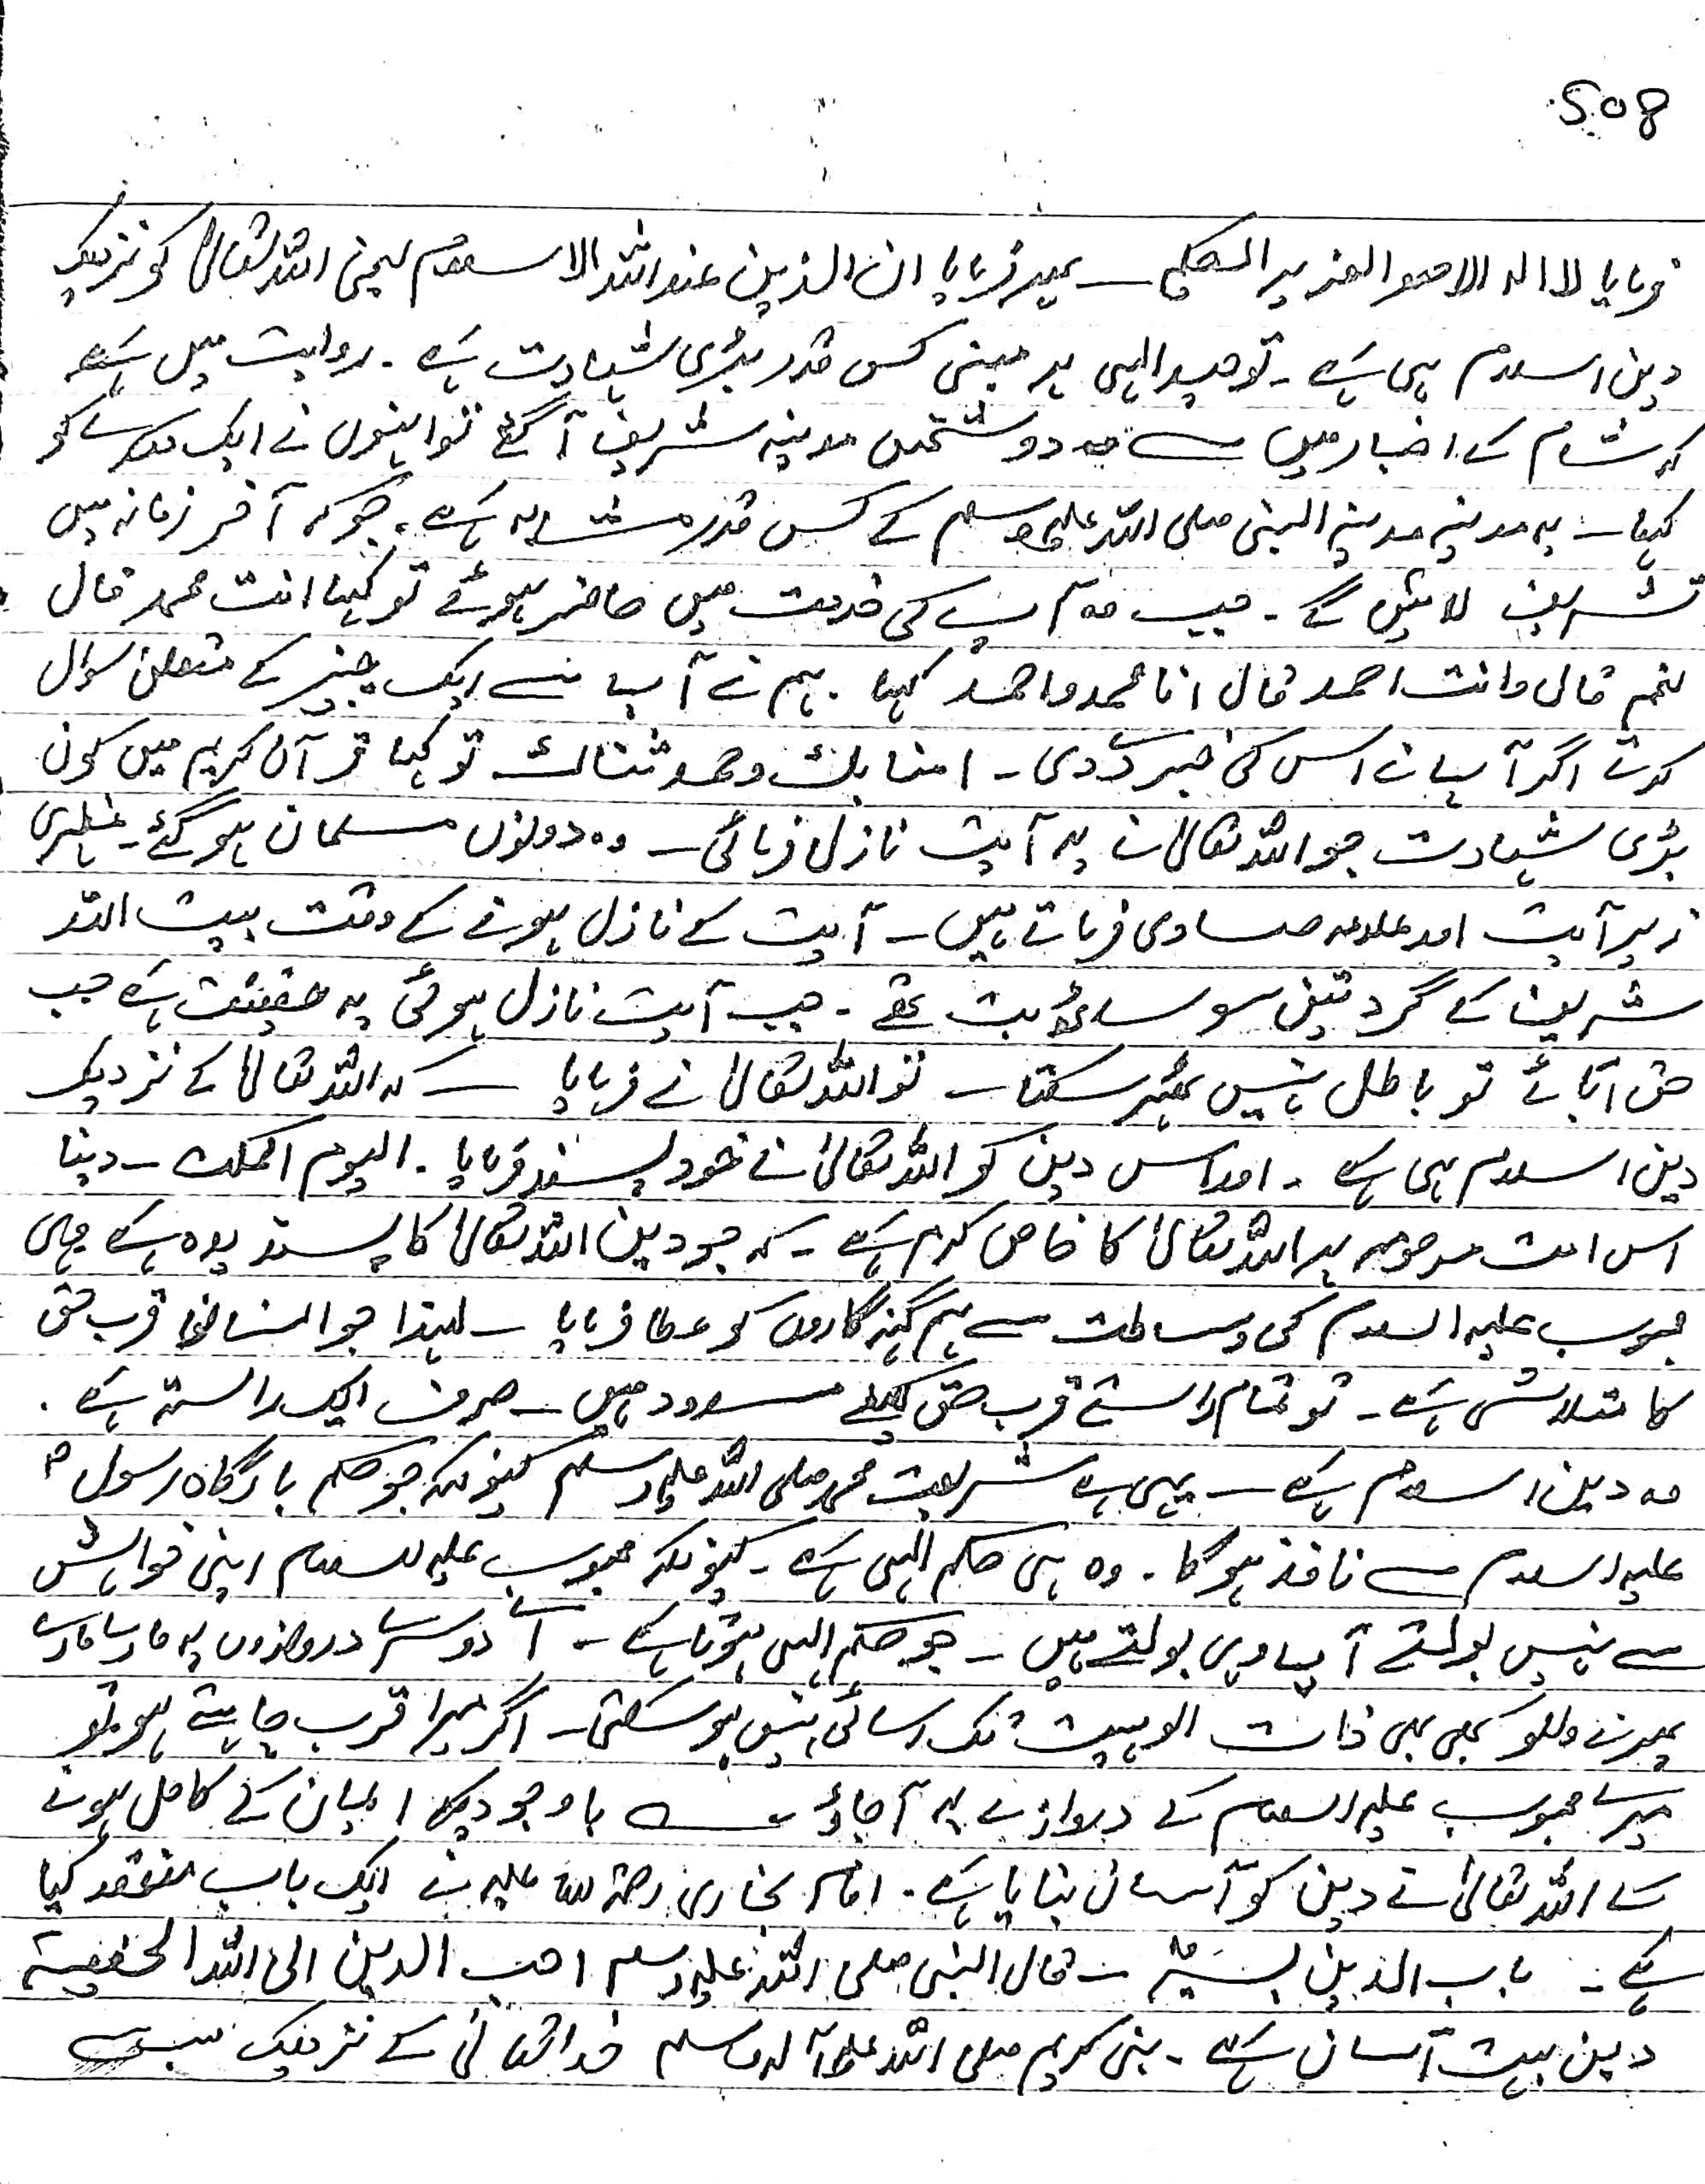 508
فرمایا لا الہ الا ھو العزیز الحکیم ۔ پھر فرمایا ان الدین عند اللہ الاسلام یعنی اللہ تعالیٰ کو نزدیک
دین اسلام ہی ہے ۔ توحید الہی پر مبنی کس قدر بڑی شہادت ہے ۔ روایت میں ہے
کہ شام کے احبار میں سے وہ دو شخص مدینہ شریف آگئے تو انہوں نے ایک دوسرے کو
کہا ۔ یہ مدینہ مدینۃ النبی صلی اللہ علیہ وسلم کے کس قدر مشابہ ہے ۔ جو کہ آخر زمانہ میں
تشریف لائیں گے ۔ جب وہ آپ کی خدمت میں حاضر ہوئے تو کہا انت محمد قال
نعم قال وانت احمد قال انا محمد واحمد کہا ۔ ہم نے آپ سے ایک چیز کے متعلق سوال
کرتے اگر آپ نے اس کی خبر دے دی ۔ امنا بک وصدقناک تو کہا قرآن کریم میں کون
بڑی شہادت جو اللہ تعالیٰ نے یہ آیت نازل فرمائی ۔ وہ دونوں مسلمان ہو گئے ۔ مظہری
زیر آیت اور علامہ صاوی فرماتے ہیں ۔ آیت کے نازل ہونے کے وقت بیت اللہ
شریف کے گرد تین سو ساٹھ بت تھے ۔ جب آیت نازل ہوئی یہ حقیقت ہے جب
حق آ جائے تو باطل نہیں ٹھہر سکتا ۔ تو اللہ تعالیٰ نے فرمایا ۔ کہ اللہ تعالیٰ کے نزدیک
دین اسلام ہی ہے ۔ اور اس دین کو اللہ تعالیٰ نے خود پسند فرمایا ۔ الیوم اکملت ۔ دینا
اس امت مرحومہ پر اللہ تعالیٰ کا خاص کرم ہے ۔ کہ جو دین اللہ تعالیٰ کا پسندیدہ ہے وہی
محبوب علیہ السلام کی وساطت سے ہم گنہگاروں کو عطا فرمایا ۔ لہذا جو انسان قرب حق
کا متلاشی ہے ۔ تو تمام راستے قرب حق کیلئے مسدود ہیں ۔ صرف ایک راستہ ہے ۔
وہ دین اسلام ہے ۔ یہی ہے شریعت محمد صلی اللہ علیہ وسلم کیونکہ جو حکم بارگاہ رسول
علیہ السلام سے نافذ ہوگا ۔ وہ ہی حکم الہی ہے ۔ کیونکہ محبوب علیہ السلام اپنی خواہش
سے نہیں بولتے آپ وہی بولتے ہیں ۔ جو حکم الہی ہوتا ہے ۔ اے دوسرے دروازوں پہ مارے مارے
پھرنے والو کبھی بھی ذات الوہیت تک رسائی نہیں ہو سکتی ۔ اگر میرا قرب چاہتے ہو تو
میرے محبوب علیہ السلام کے دروازے پہ آ جاؤ ۔ باوجودیکہ ایمان کے کامل ہونے
کے اللہ تعالیٰ نے دین کو آسان بنایا ہے ۔ امام بخاری رحمۃ اللہ علیہ نے ایک باب منعقد کیا
ہے ۔ باب الدین یسرٌ ۔ قال النبی صلی اللہ علیہ وسلم احب الدین الی اللہ الحنفیۃ
دین بہت آسان ہے ۔ نبی کریم صلی اللہ علیہ وآلہ وسلم خدا تعالیٰ کے نزدیک سب سے